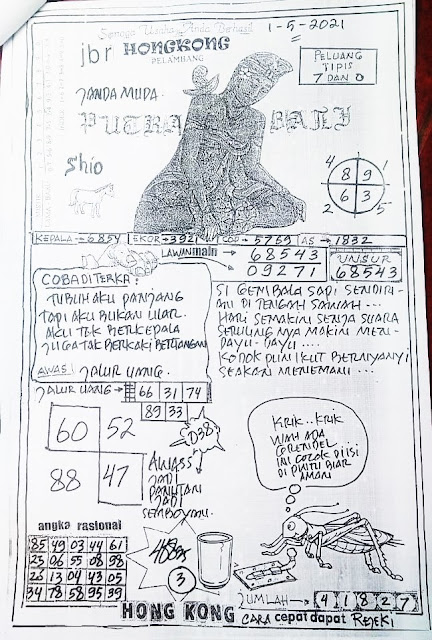 Semoga Usaha Anda Berhasil
1-5-2021
jbr HONGKONG
PELAMBANG
PELUANG
TIPIS
7 DAN 0
JANDA MUDA
PUTRA BALI
Shio
4 1
8 9
6 3
2 5
KEPALA → 6854 EKOR → 3921 COP → 5769 AS → 1832
LAWAN main 68543
09271
UNSUR
68543
COBA DI TERKA:
TUBUH AKU PANJANG
TAPI AKU BUKAN ULAR.
AKU TAK BERKEPALA
JUGA TAK BERKAKI BERTANGAN
AWAS! JALUR UANG.
SI GEMBALA SAPI SENDIRI-
AN DI TENGAH SAWAH...
HARI SEMAKIN SENJA SUARA
SERULING NYA MAKIN MEN-
DAYU-DAYU....
KODOK PUN IKUT BERNYANYI
SEAKAN MENEMANI...
JALUR UANG → 66 31 74
89 33
60 52
88 47
D38
AWASS
JADI
PANUTAN
JADI
SEMBOYAN.
KRIK..KRIK
WAH ADA
GRENDEL
INI COCOK DI ISI
DI PINTU BIAR
AMAN
angka rasional
85 49 03 44 61
25 06 55 08 98
26 13 04 43 05
34 78 58 95 39
3
JUMLAH → 4 1 8 2 7
HONG KONG CARA cepat dapat REJEKI